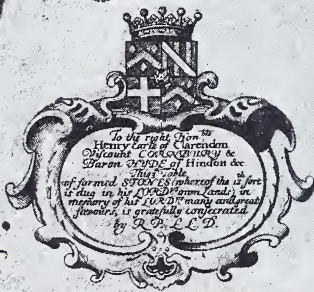 To the right Hon.ble
Henry Earle of Clarendon
Viscount CORNBURY &
Baron HYDE of Hindon &c
This Table
of formed STONES (whereof the 15th sort
is dug in his LORDPs own Lands) in
memory of his LORDPs many and great
favours, is gratefully consecrated
by R. P. L L. D.